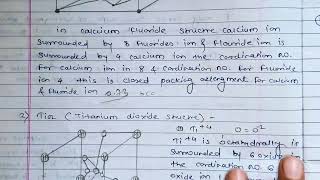 in calccium fluoride strucre calcium ion
surrounded by 8 fluorides ion & Flauride ion is
surrounded by 4 calcium ion the cordination no.
for calcium ion in 8 & cordination no. for fluoride
ion 4 this is closed packing arrengment for calcium
& fluride ion 0.73
2) TiO2 (Titanium dioxide strucre) -
Ti+4 O=O2
Ti+4 is octahedrally is
surrounded by 6 oxide
the cordination no. 6
oxide ion